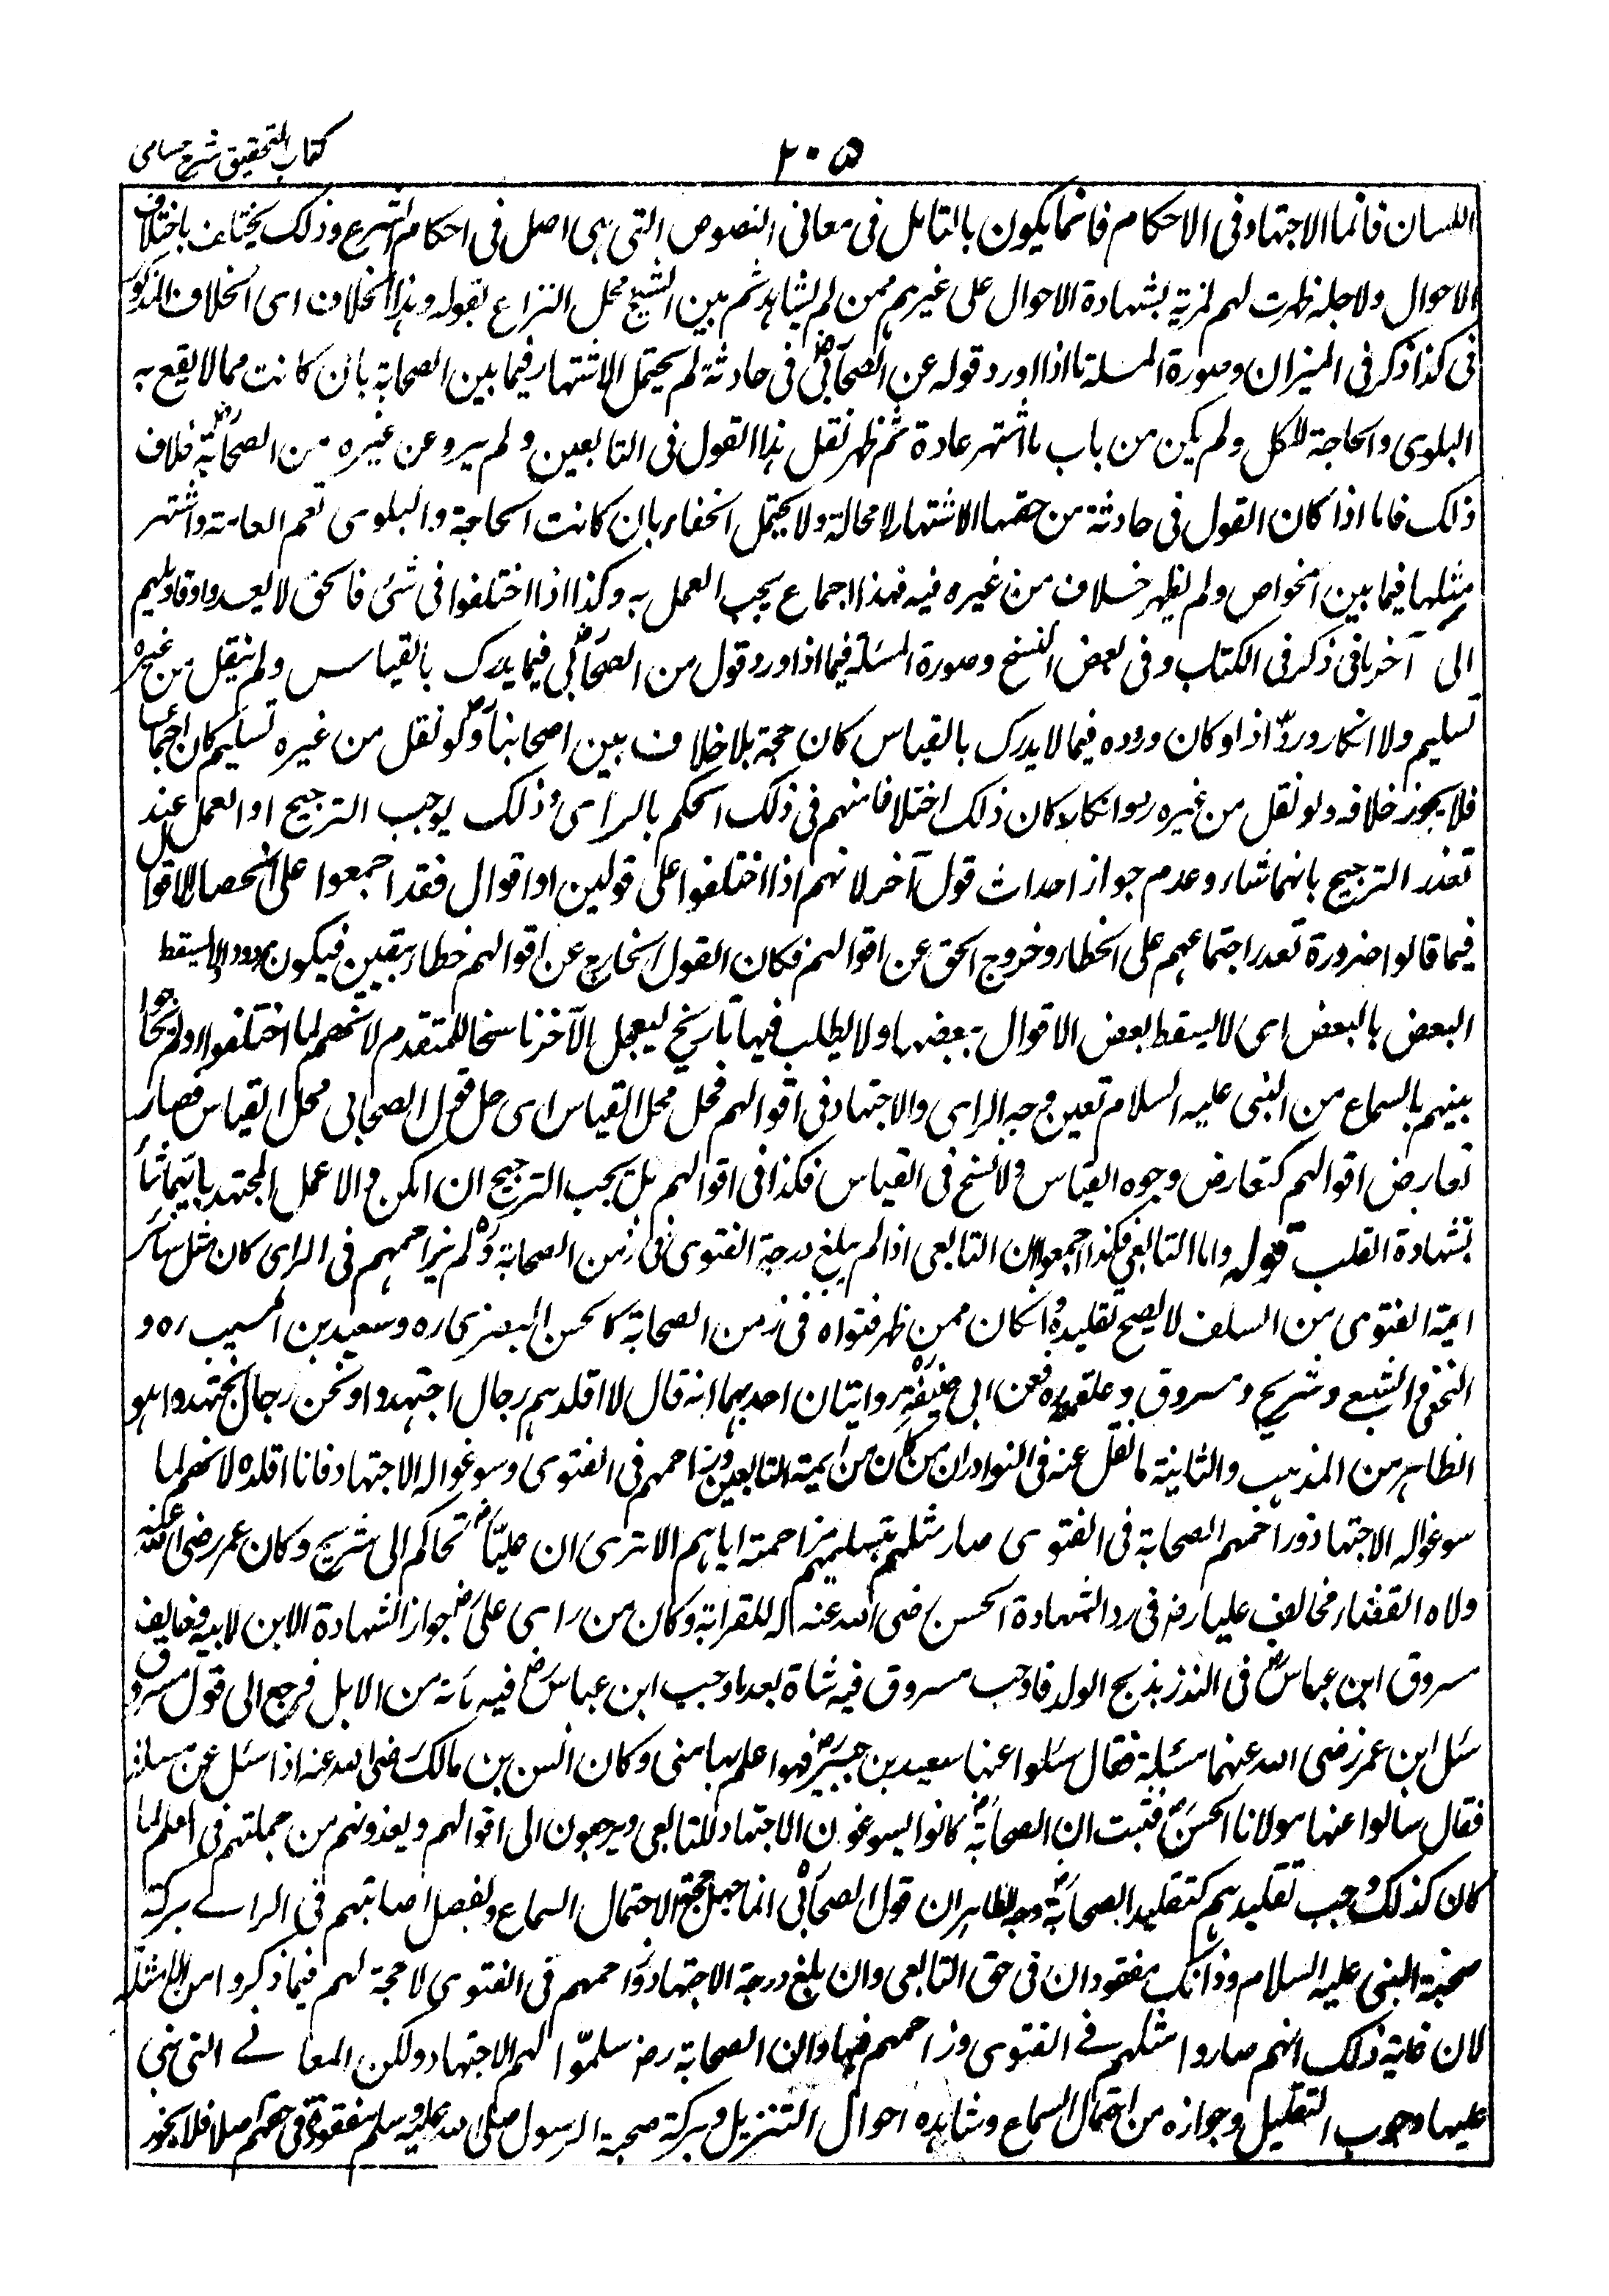 كتاب التحقيق شرح حسامى
٢٠٥
اللسان فانما الاجتهاد فى الاحكام فانما يكون بالتامل فى معانى النصوص التى هى اصل فى احكام الشرع وذلك يختلف باختلاف
الاحوال ولاجله ظهرت لهم مزية بشهادة الاحوال على غيرهم ممن لم يشاهد ثم بين الشيخ محل النزاع بقوله وهذا الخلاف اى الخلاف المذكور
فى كذا ذكر فى الميزان وصورة المسئلة ما اذا اورد قوله عن الصحابى رض فى حادثة لم يحتمل الاشتهار فيما بين الصحابة بان كانت مما لا يقع به
البلوى والحاجة للكل ولم يكن من باب ما اشتهر عادة ثم ظهر نقل هذا القول فى التابعين ولم يرو عن غيره من الصحابة رض خلاف
ذلك فاما اذا كان القول فى حادثة من حقها الاشتهار لا محالة ولا يحتمل الخفاء بان كانت الحاجة والبلوى تعم العامة واشتهر
مثلها فيما بين الخواص ولم يظهر خلاف من غيره فيه فهذا اجماع يجب العمل به وكذا اذا اختلفوا فى شئ فالحق لا يعدو اقاويلهم
الى آخر ما فى ذكر فى الكتاب وفى بعض النسخ وصورة المسئلة فيما اذا ورد قول من الصحابى فيما يدرك بالقياس ولم ينقل من غيره
تسليم ولا انكار ورد اذ لو كان وروده فيما لا يدرك بالقياس كان حجة بلا خلاف بين اصحابنا ولو نقل من غيره تسليم كان اجماعا
فلا يجوز خلافه ولو نقل من غيره رد وانكار كان ذلك اختلافا منهم فى ذلك الحكم بالراى وذلك يوجب الترجيح او العمل عند
تعذر الترجيح بايهما شاء وعدم جواز احداث قول آخر لانهم اذا اختلفوا على قولين او اقوال فقد اجمعوا على انحصار الاقوال
فيما قالوا ضرورة تعذر اجتماعهم على الخطاء وخروج الحق عن اقوالهم فكان القول الخارج عن اقوالهم خطاء بيقين فيكون مردودا لا يسقط
البعض بالبعض اى لا يسقط بعض الاقوال ببعضها ولا يطلب فيها تاريخ ليجعل الآخر ناسخا للمتقدم لانهم لما اختلفوا ولم يتحاجوا
بينهم بالسماع من النبى عليه السلام تعين وجه الراى والاجتهاد فى اقوالهم فحل محل القياس اى حل قول الصحابى محل القياس فصار
تعارض اقوالهم كتعارض وجوه القياس ولا نسخ فى القياس فكذا فى اقوالهم بل يجب الترجيح ان امكن والا عمل المجتهد بايهما شاء
بشهادة القلب قوله واما التابعى فكذا اجمعوا ان التابعى اذا لم يبلغ درجة الفتوى فى زمن الصحابة رض ولم يزاحمهم فى الراى كان مثل سائر
ائمة الفتوى من السلف لا يصح تقليده وان كان ممن ظهر فتواه فى زمن الصحابة كالحسن البصرى ره وسعيد بن المسيب ره و
النخعى والشعبى وشريح ومسروق وعلقمة ره فعن ابى حنيفة روايتان احديهما انه قال لا اقلدهم رجال اجتهدوا ونحن رجال نجتهد وهو
الظاهر من المذهب والثانية ما نقل عنه فى النوادر ان من كان من ائمة التابعين وزاحمهم فى الفتوى وسوغوا له الاجتهاد فانا اقلده لانهم لما
سوغوا له الاجتهاد وزاحمهم الصحابة فى الفتوى صار مثلهم بتسليمهم مزاحمته اياهم الا ترى ان عليّا رض تحاكم الى شريح وكان عمر رضى الله عنه
ولاه القضاء فخالف عليا رض فى رد الشهادة الحسن رضى الله عنه له للقرابة وكان من راى على رض جواز الشهادة الابن لابيه وخالف
مسروق ابن عباس رض فى النذر بذبح الولد فاوجب مسروق فيه شاة بعد ما اوجب ابن عباس رض فيه مائة من الابل فرجع الى قول مسروق
سئل ابن عمر رضى الله عنهما مسئلة فقال سئلوا عنها سعيد بن جبير فهو اعلم بها منى وكان انس بن مالك رضى الله عنه اذا سئل عن مسئلة
فقال سالوا عنها مولانا الحسن فثبت ان الصحابة رض كانوا يسوغون الاجتهاد للتابعى ويرجعون الى اقوالهم ويعدونهم من جملتهم فى العلم لما
كان كذلك وجب تقليدهم كتقليد الصحابة رض وجه الظاهر ان قول الصحابى انما جعل حجة لاحتمال السماع ولفضل اصابتهم فى الراى ببركة
صحبة النبى عليه السلام وذانك مفقودان فى حق التابعى وان بلغ درجة الاجتهاد وزاحمهم فى الفتوى لا حجة لهم فيما ذكروا من الامثلة
لان غاية ذلك انهم صاروا مثلهم فى الفتوى وزاحمهم فيها وان الصحابة رض سلموا لهم الاجتهاد ولكن المعانى التى بنى
عليها وجوب التقليل وجوازه من احتمال السماع ومشاهده احوال التنزيل وبركة صحبة الرسول صلى الله عليه وسلم مفقودة فى حقهم اصلا فلا يجوز